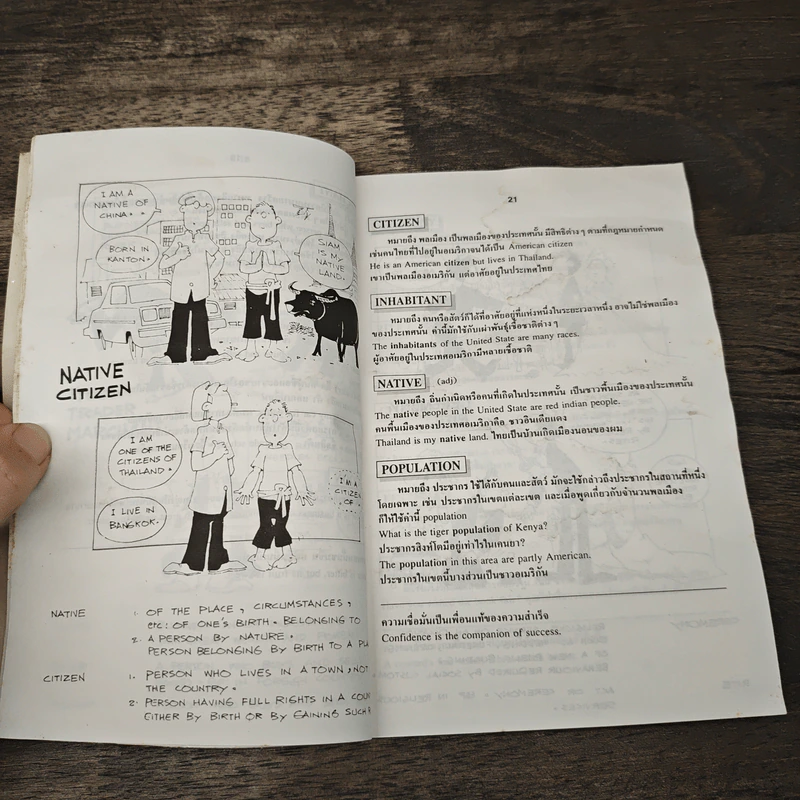 I AM A
NATIVE OF
CHINA.
BORN IN
KANTON.
SIAM
IS MY
NATIVE
LAND.
NATIVE
CITIZEN
I AM
ONE OF THE
CITIZENS OF
THAILAND.
I LIVE IN
BANGKOK.
I AM A
CITIZEN
OF
NATIVE 1. OF THE PLACE, CIRCUMSTANCES,
etc: OF ONE'S BIRTH. BELONGING TO
2. A PERSON BY NATURE.
PERSON BELONGING BY BIRTH TO A
CITIZEN 1. PERSON WHO LIVES IN A TOWN, NOT
THE COUNTRY.
2. PERSON HAVING FULL RIGHTS IN A
EITHER BY BIRTH OR BY GAINING SUCH
21
CITIZEN
หมายถึง พลเมือง เป็นพลเมืองของประเทศนั้น มีสิทธิต่าง ๆ ตามที่กฎหมายกำหนด
เช่นคนไทยที่ไปอยู่ในอเมริกาจนได้เป็น American citizen
He is an American citizen but lives in Thailand.
เขาเป็นพลเมืองอเมริกัน แต่อาศัยอยู่ในประเทศไทย
INHABITANT
หมายถึง คนหรือสัตว์ก็ได้ที่อาศัยอยู่ที่แห่งหนึ่งในระยะเวลาหนึ่ง อาจไม่ใช่พลเมือง
ของประเทศนั้น คำนี้มักใช้กับเผ่าพันธุ์เชื้อชาติต่าง ๆ
The inhabitants of the United State are many races.
ผู้อาศัยอยู่ในประเทศอเมริกามีหลายเชื้อชาติ
NATIVE (adj)
หมายถึง ถิ่นกำเนิดหรือคนที่เกิดในประเทศนั้น เป็นชาวพื้นเมืองของประเทศนั้น
The native people in the United State are red indian people.
คนพื้นเมืองของประเทศอเมริกาคือ ชาวอินเดียแดง
Thailand is my native land. ไทยเป็นบ้านเกิดเมืองนอนของผม
POPULATION
หมายถึง ประชากร ใช้ได้กับคนและสัตว์ มักจะใช้กล่าวถึงประชากรในสถานที่หนึ่ง
โดยเฉพาะ เช่น ประชากรในเขตแต่ละเขต และเมื่อพูดเกี่ยวกับจำนวนพลเมือง
ก็ให้ใช้คำนี้ population
What is the tiger population of Kenya?
ประชากรสิงห์โตมีอยู่เท่าไรในเคนยา?
The population in this area are partly American.
ประชากรในเขตนี้บางส่วนเป็นชาวอเมริกัน
ความเชื่อมั่นเป็นเพื่อนแท้ของความสำเร็จ
Confidence is the companion of success.